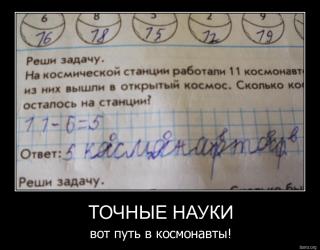 6 8 5 2 9
16 18 15 12 19
Реши задачу.
На космической станции работали 11 космонавт
из них вышли в открытый космос. Сколько ко
осталось на станции?
11-6=5
Ответ: 5 космонафтов
Реши задачу.
ТОЧНЫЕ НАУКИ
вот путь в космонавты!